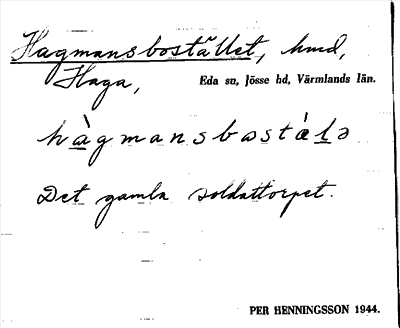 Hagmansbostället, hmd,
Haga,
Eda sn, Jösse hd, Värmlands län.
hàgmansbostä̀lə
Det gamla soldattorpet.
PER HENNINGSSON 1944.